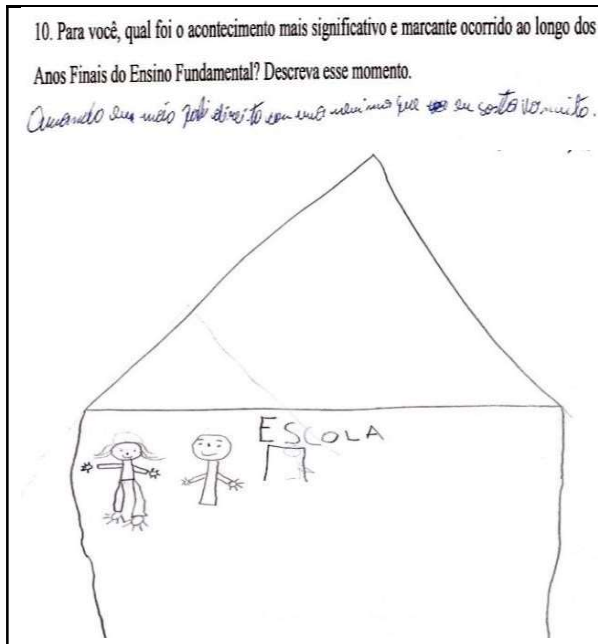 10. Para você, qual foi o acontecimento mais significativo e marcante ocorrido ao longo dos
Anos Finais do Ensino Fundamental? Descreva esse momento.
eu não direito com uma menina que eu gostava muito.
ESCOLA